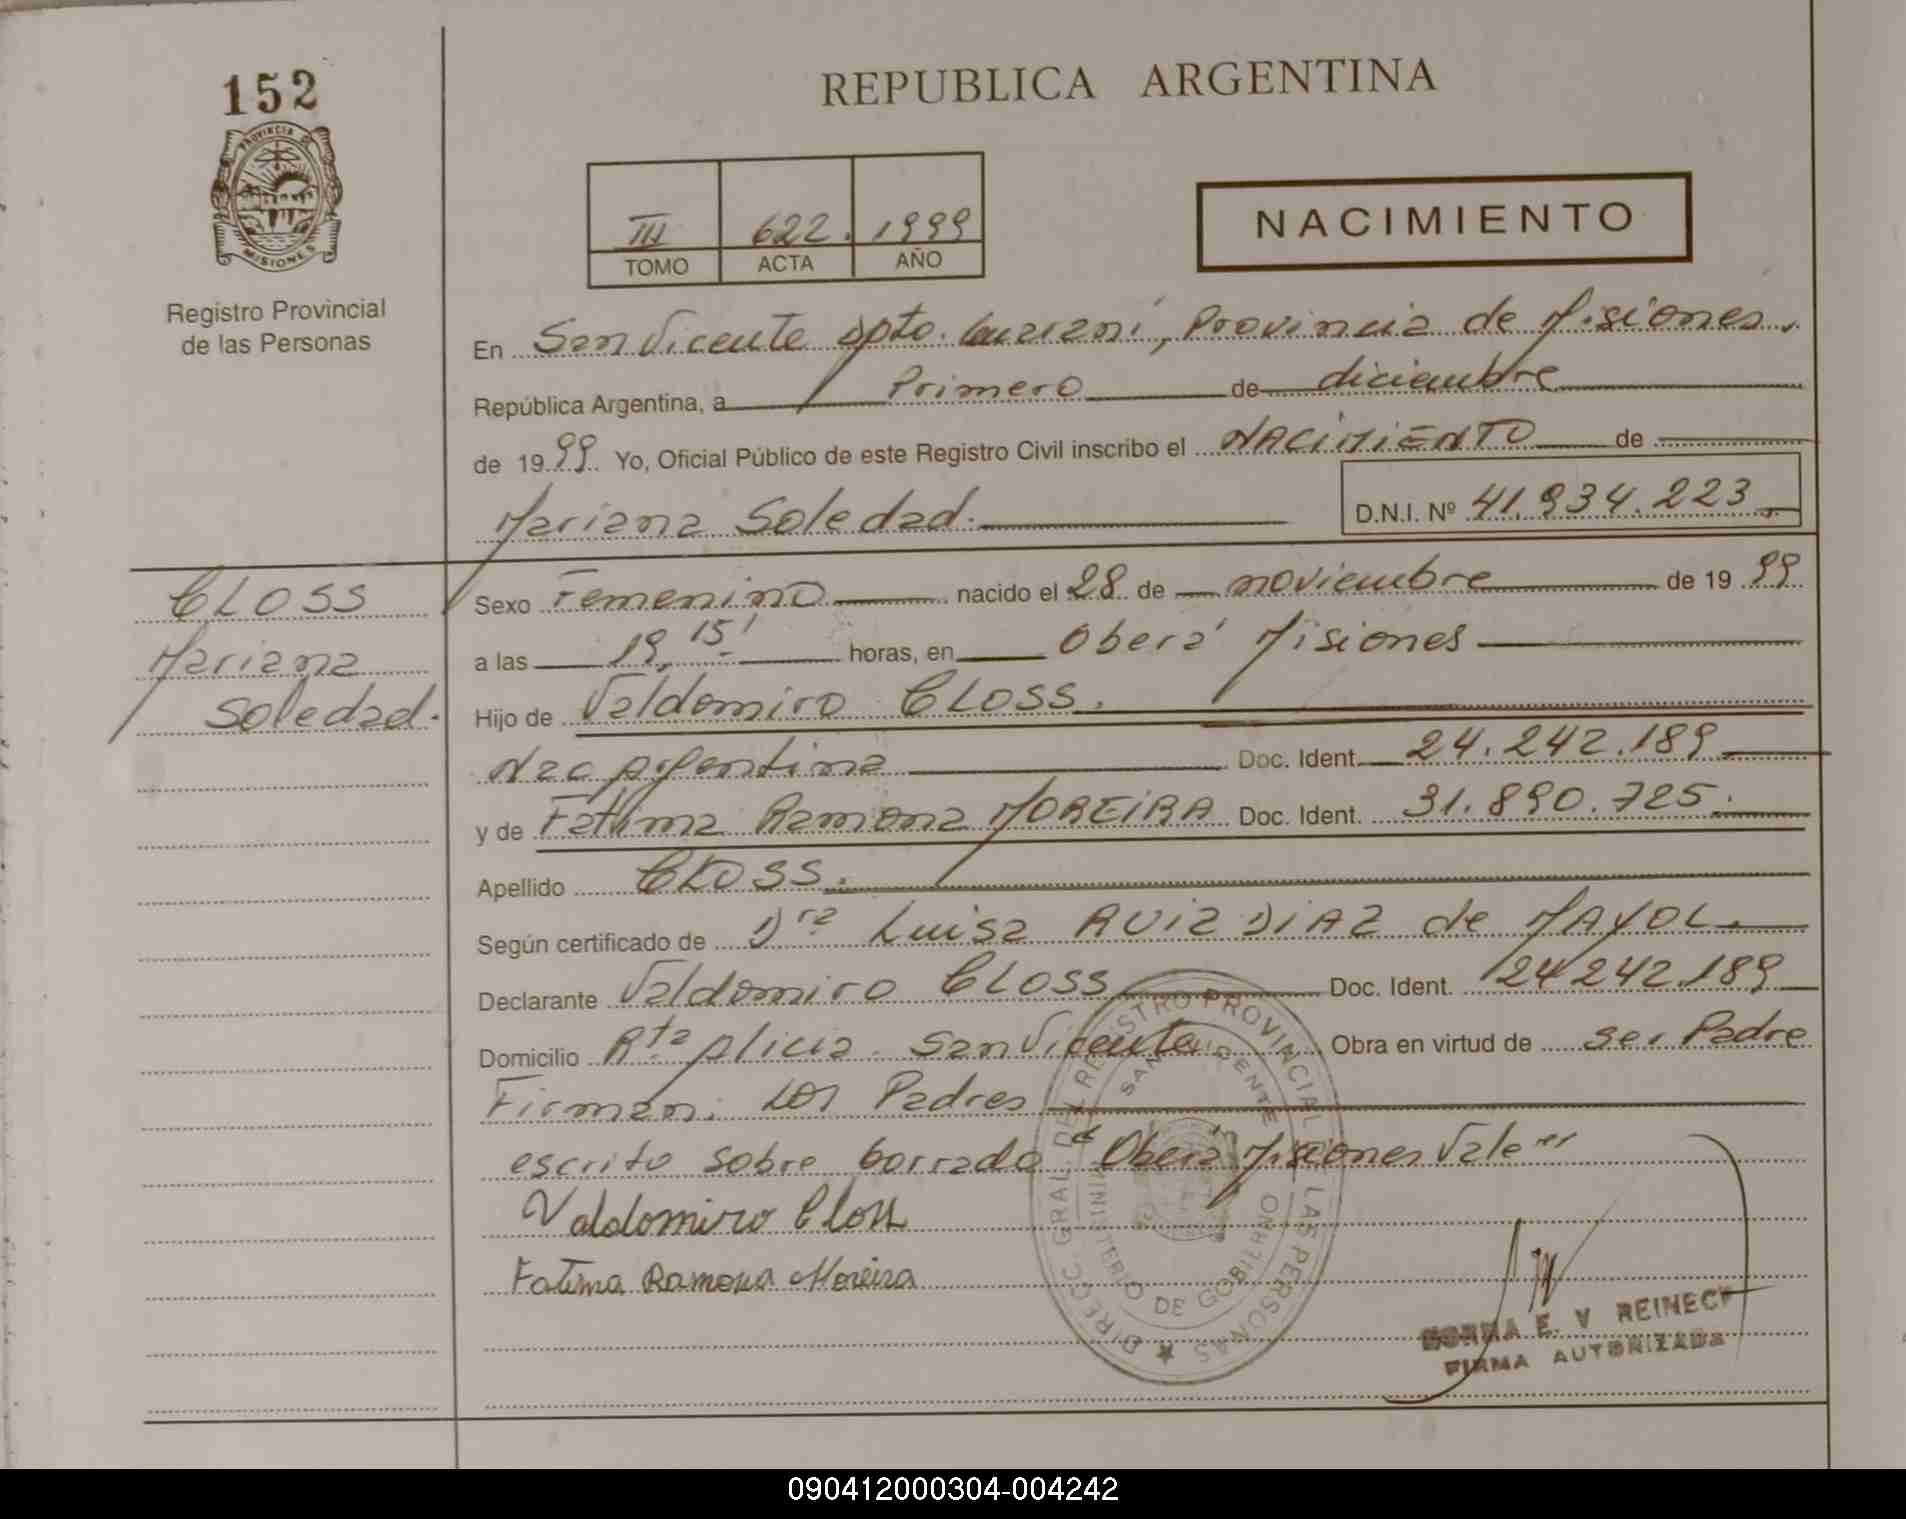 152
PROVINCIA DE
MISIONES
Registro Provincial
de las Personas
REPUBLICA ARGENTINA
III 622. 1999
TOMO ACTA AÑO
NACIMIENTO
En San Vicente Dpto. Guaraní, Provincia de Misiones.
República Argentina, a Primero de diciembre
de 1999. Yo, Oficial Público de este Registro Civil inscribo el NACIMIENTO de
Mariana Soledad. D.N.I. Nº 41.934.223.
CLOSS
Mariana
Soledad.
Sexo Femenino nacido el 28 de noviembre de 1999
a las 19,15' horas, en Oberá Misiones
Hijo de Valdomiro CLOSS.
Nac Argentina Doc. Ident. 24.242.189
y de Fatima Ramona MOREIRA Doc. Ident. 31.890.725.
Apellido CLOSS.
Según certificado de Dra Luisa RUIZ DIAZ de MAYOL.
Declarante Valdomiro CLOSS Doc. Ident. 24242.189
Domicilio Rta Alicia San Vicente Obra en virtud de ser Padre
Firman: Los Padres
escrito sobre borrado " Oberá Misiones Vale "
Valdomiro Closs
Fatima Ramona Moreira
DIREC. GRAL. DEL REGISTRO PROVINCIAL LAS PERSONAS
SAN VICENTE
MINISTERIO DE GOBIERNO
E. V REINECK
FIRMA AUTORIZADA
090412000304-004242